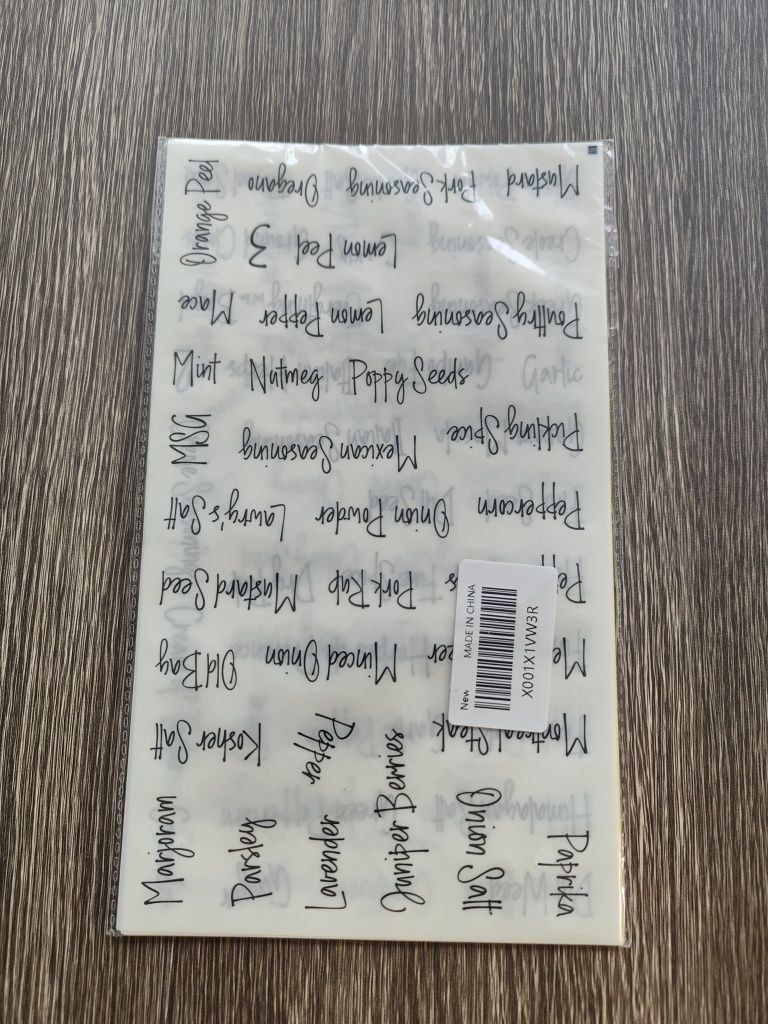 Orange Peel
Oregano
Pork Seasoning
Mustard
3
Lemon Peel
Creole Seasoning
Mace
Lemon Pepper
Poultry Seasoning
Mint Nutmeg Poppy Seeds
Garlic
MSG
Mexican Seasoning
Pickling Spice
Lawry's Salt
Onion Powder
Peppercorn
Mustard Seed
Pork Rub
Old Bay
Minced Onion
Kosher Salt
Pepper
Montreal Steak
Marjoram
Parsley
Lavender
Juniper Berries
Onion Salt
Paprika
New
MADE IN CHINA
X001X1VW3R